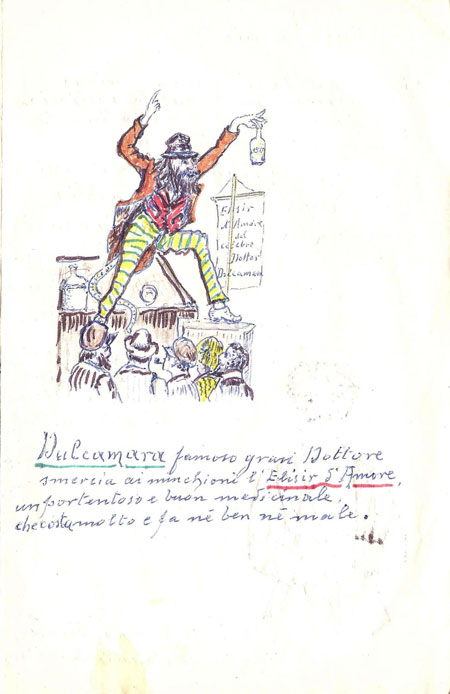 Elisir
d'Amore
del
celebre
Dottor
Dulcamara
Dulcamara famoso gran Dottore
smercia ai minchioni l'Elisir d'Amore,
un portentoso e buon medicinale,
che costa molto e fa nè ben nè male.